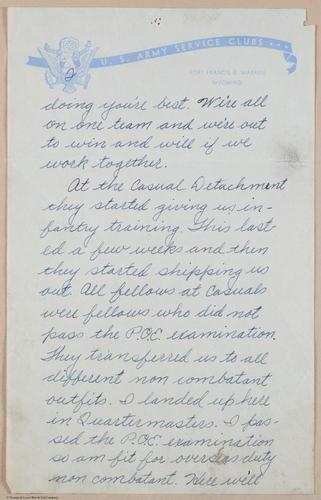 2
U. S. ARMY SERVICE CLUBS
FORT FRANCIS E. WARREN
WYOMING
doing you're best. We're all
on one team and we're out
to win and will if we
work together.
At the Casual Detachment
they started giving us in-
fantry training. This last-
ed a few weeks and then
they started shipping us
out. All fellows at Casuals
were fellows who did not
pass the P.O.E. examination.
They transferred us to all
different non combatant
outfits. I landed up here
in Quartermasters. I pas-
sed the P.O.E. examination
so am fit for overseas duty
non combatant. Here will